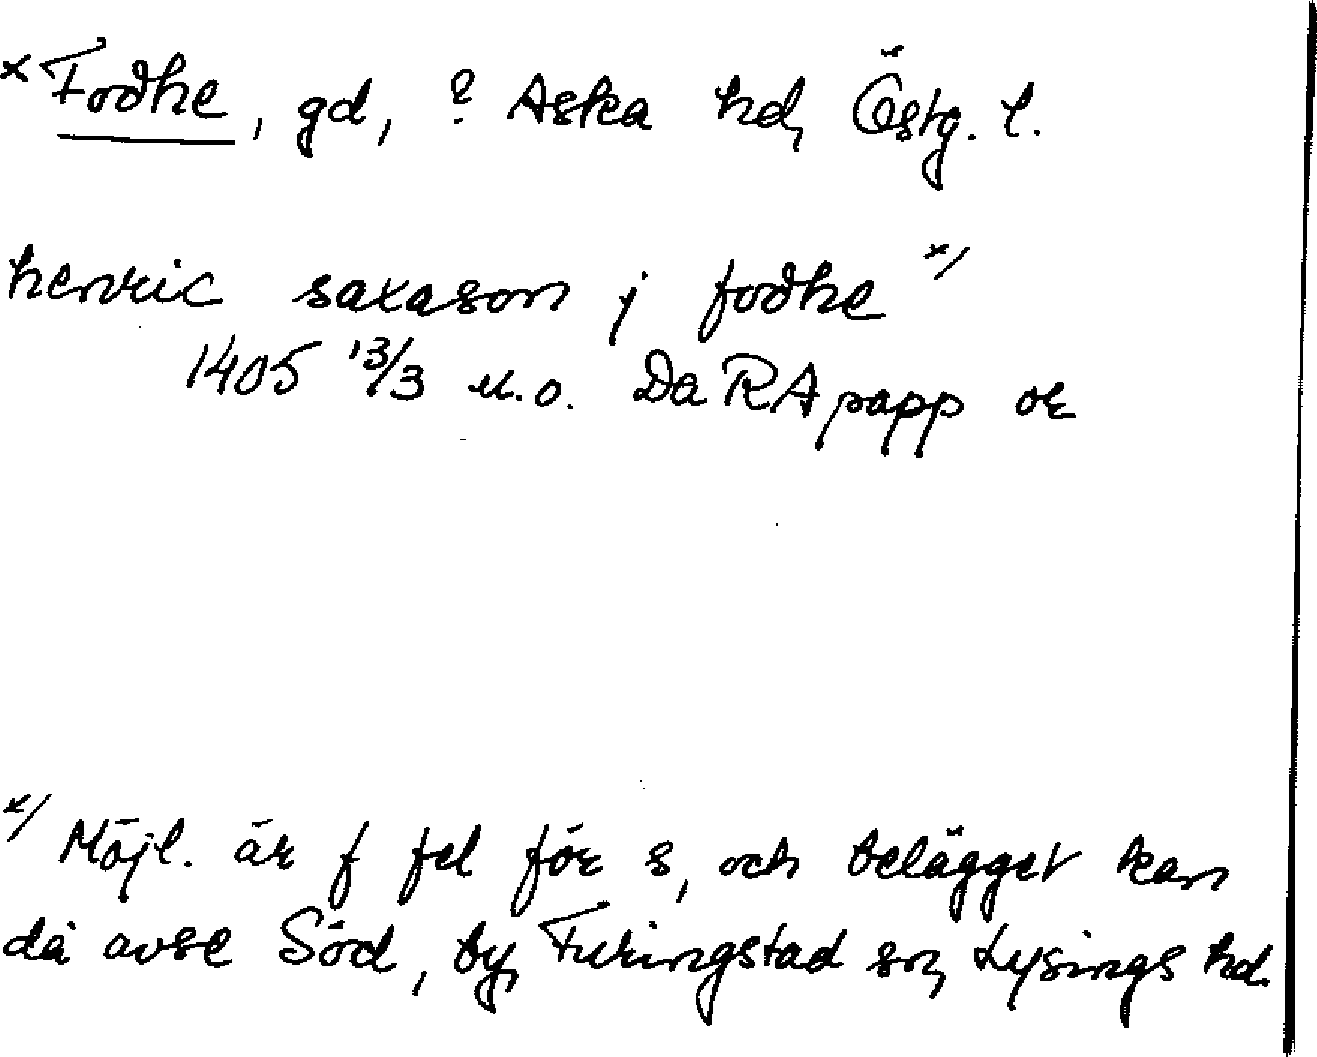 ×Fodhe, gd, ? Aska hd, Östg. l.
henric saxason j fodhe ×/
1405 13/3 u.o. Da RA papp or
×/ Möjl. är f fel för s, och belägget kan
då avse Söd, by, Furingstad sn, Lysings hd.